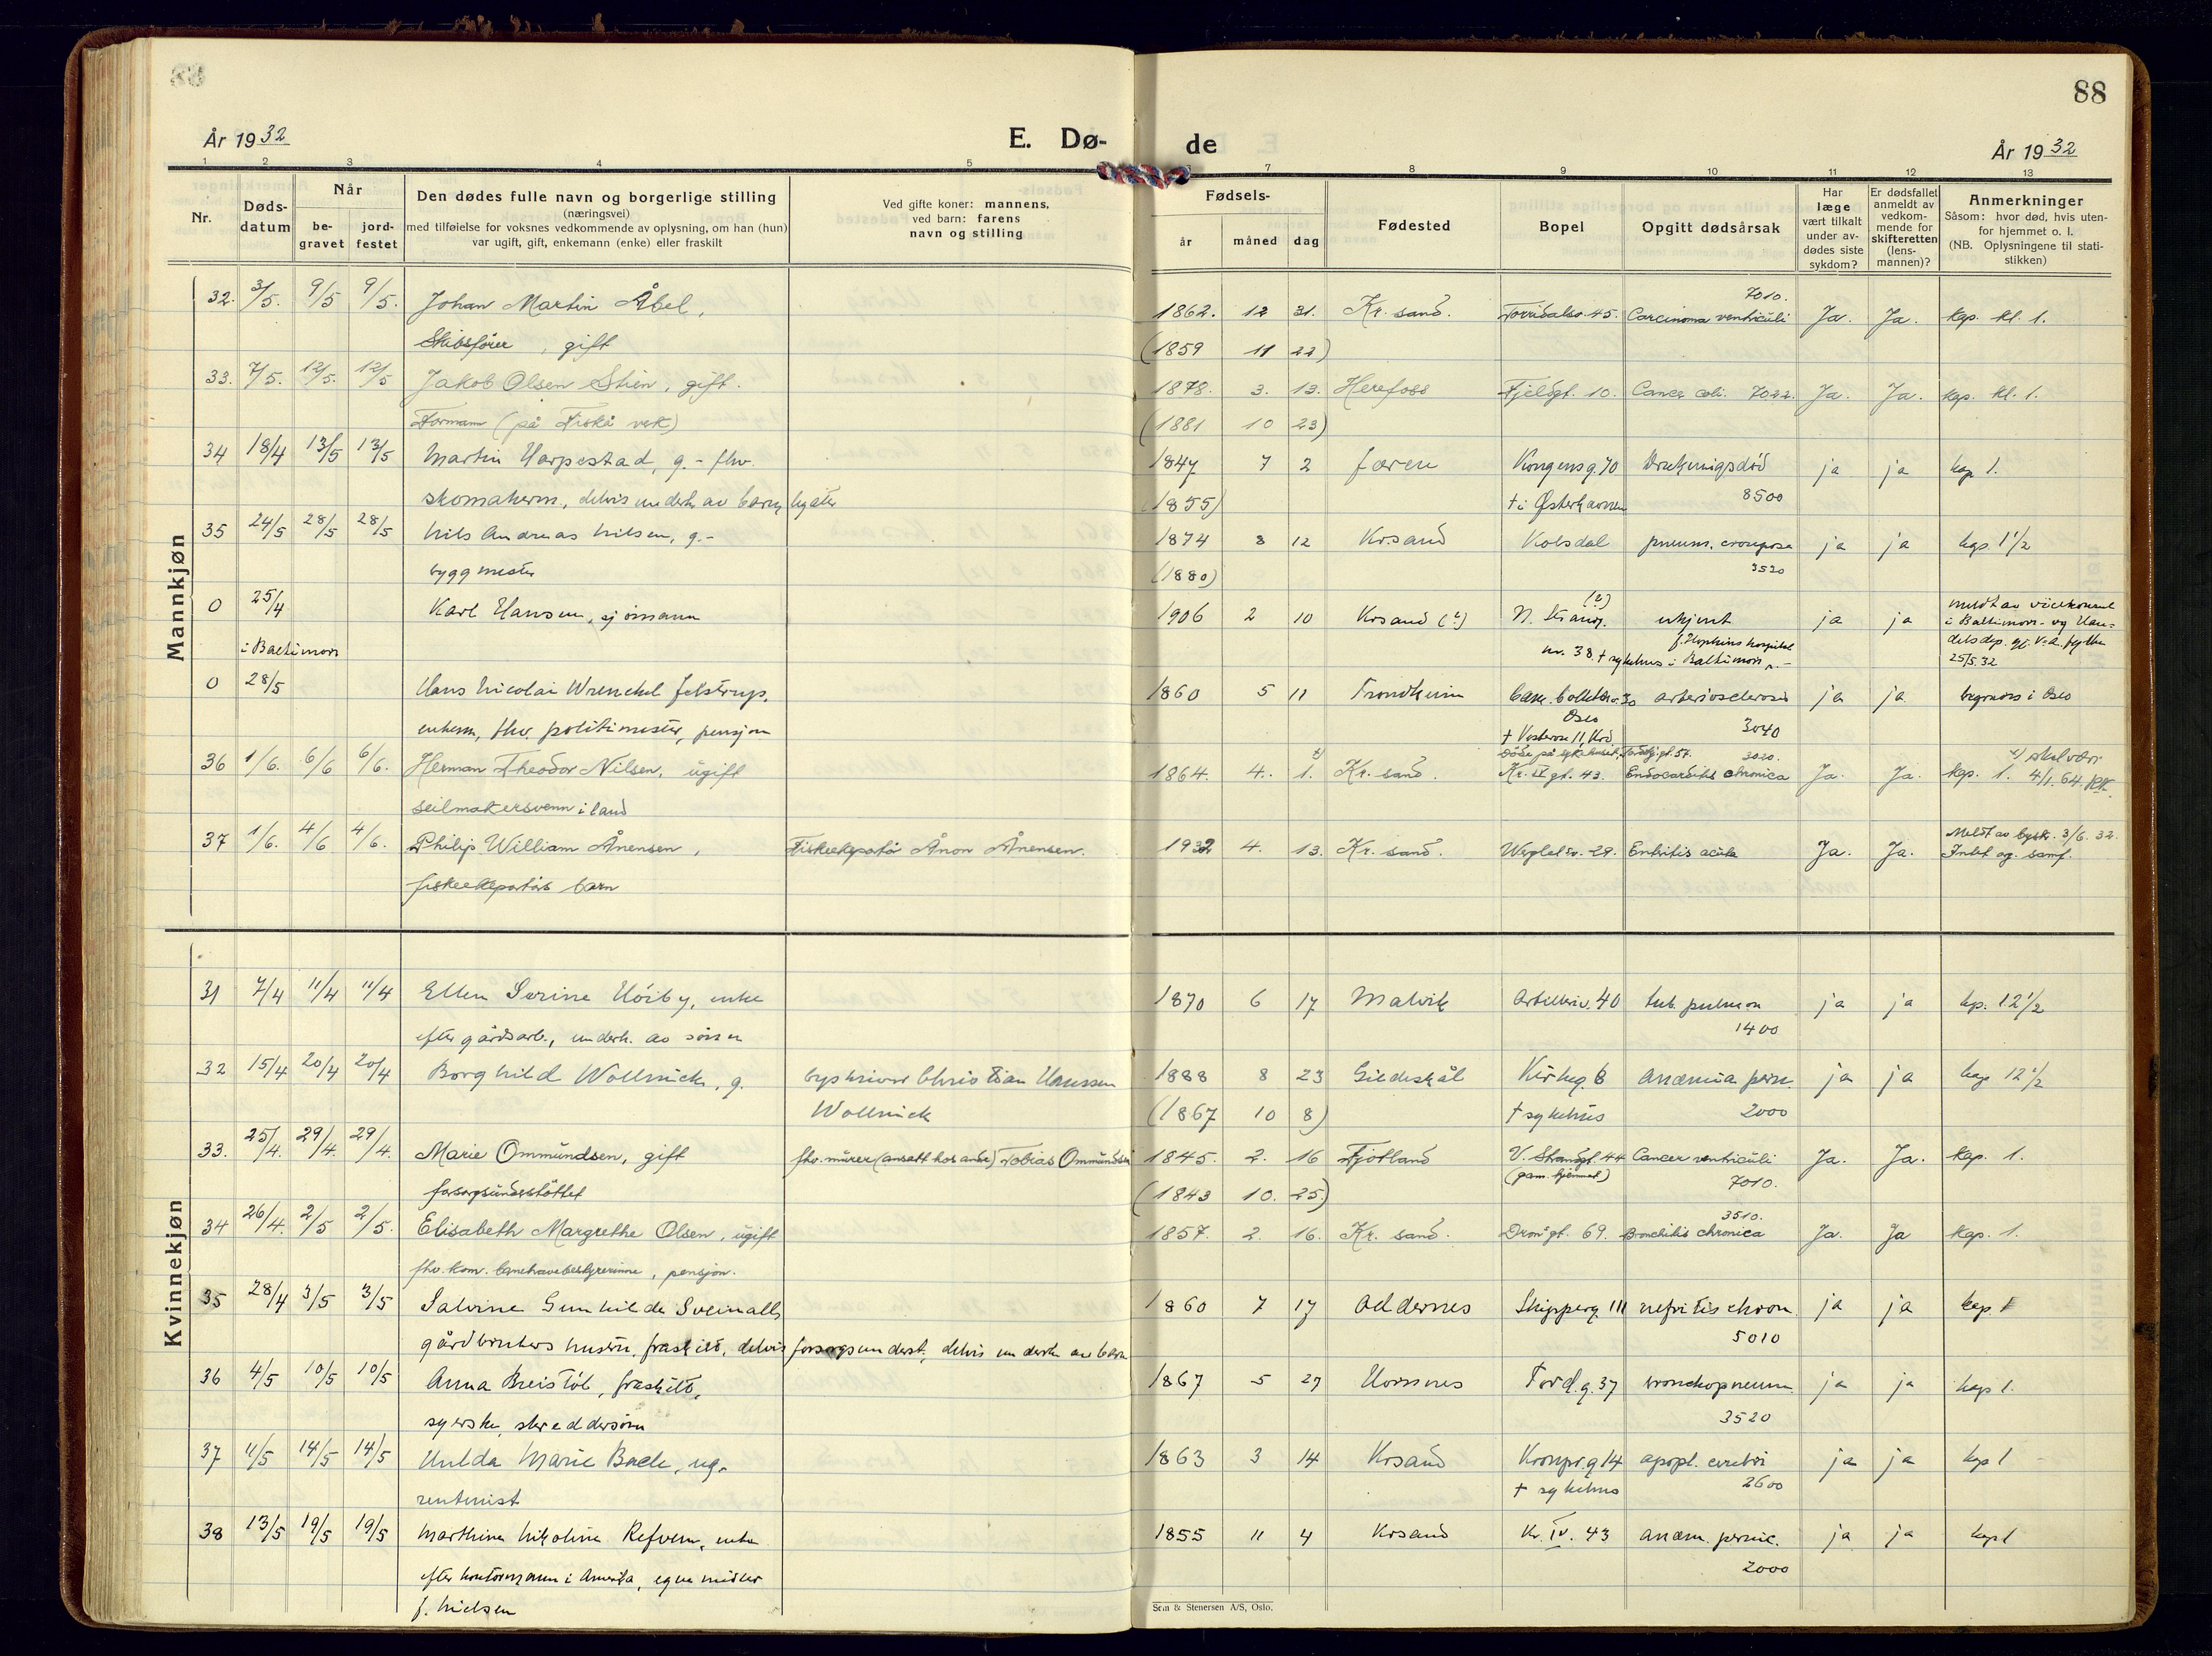 88
År 1932
E. Dø-
de
År 1932
1 2 3 4 5 6 7 8 9 10 11 12 13
Nr.
Døds-
datum
Når
be-
gravet
jord-
festet
Den dødes fulle navn og borgerlige stilling
(næringsvei)
med tilføielse for voksnes vedkommende av oplysning, om han (hun)
var ugift, gift, enkemann (enke) eller fraskilt
Ved gifte koner: mannens,
ved barn: farens
navn og stilling
Fødsels-
år måned dag
Fødested
Bopel
Opgitt dødsårsak
Har
læge
vært tilkalt
under av-
dødes siste
sykdom?
Er dødsfallet
anmeldt av
vedkom-
mende for
skifteretten
(lens-
mannen)?
Anmerkninger
Såsom: hvor død, hvis uten-
for hjemmet o. l.
(NB. Oplysningene til stati-
stikken)
Mannkjøn
7010.
32. 3/5. 9/5 9/5. Johan Martin Åbel, 1862. 12 31. Kr. sand. Torridalsv. 45. Carcinoma ventriculi Ja. Ja. kap. kl. 1.
Skibsfører, gift (1859 11 22)
33. 7/5. 12/5. 12/5 Jakob Olsen Stien, gift. 1878. 3. 13. Herefoss Fjeldgt. 10. Cancer coli. 7022. Ja. Ja. kap. kl. 1.
Formann (på Fiskå verk) (1881 10 23)
34 18/4 13/5 13/5 Martin Harpestad, g. - fhv. 1847 7 2 Jæren Kongensg. 70 Drukningsdød ja ja kap 1.
skomakerm., delvis underh. av barn, legater (1855) † i Østerhavnen 8500
35 24/5 28/5 28/5 Nils Andreas Nilsen, g. - 1874 8 12 Krsand Kolsdal pneum. crouposa ja ja kap. 1 1/2
byggmester (1880) 3520
0 25/4 Karl Hansen, sjømann 1906 2 10 Krsand (?) N. Strandg. (?) ukjent ja ja meldt av visekonsul
i Baltimore nr. 38 † sykehus i Baltimore J. Hopkins hospital i Baltimore - og Han-
delsdep. gj.
25/5.32
0 28/5 Hans Nicolai Wrenchel Jelstrup, 1860 5 11 Trondheim Cam. Collettsv. 30 arteriosclerosis ja ja. begraves i Oslo
enkem., fhv. politimester, pensjon Oslo 3040
† Vesterve 11, Krs.
36 1/6. 6/6 6/6. Herman Theodor Nilsen, ugift 1864. 4. 1. Kr. sand. Kr. IV gt. 43. Endocarditis chronica 3020. Ja. Ja. kap. 1. skal være 4/1. 64.
seilmakersvenn i land
37 1/6. 4/6 4/6. Philip William Ånensen, Fiskeeksportør Ånon Ånensen. 1932 4. 13. Kr. sand. Wergelsv. 29. Entritis acuta Ja. Ja. Meldt av byskr. 3/6. 32.
fiskeeksportørs barn Intet og. samf.
Kvinnekjøn
31 7/4 11/4 11/4 Ellen Serine Høiby, enke 1870 6 17 Malvik Artilleriv. 40 tub. pulmon ja ja kp. 12 1/2
efter gårdsarb., underh. av sønnen 1400
32 15/4 20/4 20/4 Borghild Wollnick, g. byskriver Christian Hanssen 1888 8 23 Gildeskål Kirkeg. 8 anæmia pern. ja ja kap 12 1/2
Wollnick (1867 10 8) † sykehus 2000
33. 25/4. 29/4. 29/4. Marie Ommundsen, gift fhv. murer (ansatt hos andre) Tobias Ommundsen 1845. 2. 16 Fjotland V. Strandgt. 44 Cancer ventriculi Ja. Ja. kap. 1.
forsorgsunderstøttet (1843 10. 25.) (gam. hjemmet) 7010.
3510.
34 26/4. 2/5 2/5. Elisabeth Margrethe Olsen, ugift 1857. 2. 16. Kr. sand. Dron. gt. 69. Bronchitis chronica Ja. Ja kap. 1.
fhv. kom. barnehavebestyrerinne, pensjon.
35 28/4 3/5 3/5 Salvine Gunhilde Sveinall, 1860 7 17 Oddernes Skipperg. 111 nefritis chron. ja ja kap. 1
gårdbrukers hustru, fraskilt, delvis forsorgsunderst., delvis underh. av barn 5010
36 4/5 10/5 10/5 Anna Breistøl, fraskilt, 1867 5 27 Hornnes Tord.g. 37 bronchopneum. ja ja kap 1.
syerske, skreddersøm 3520
37 11/5 14/5 14/5 Hulda Marie Bade, ug. 1863 3 14 Krsand Kronpr.g 14 apopl. cerebri ja ja kap 1
rentenist † sykehus 2600
38 13/5 19/5 19/5 Marthine Nikoline Refvem, enke 1855 11 4 Krsand Kr. IV. 43 anæm. pernic. ja ja kap 1
efter kontormann i Amerika, egne midler 2000
f. Nielsen
Sem & Stenersen A/S, Oslo.